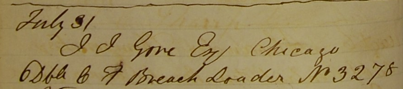 July 31
J J Gove Esq Chicago
6 Dbl B F Breach Loader No 3278